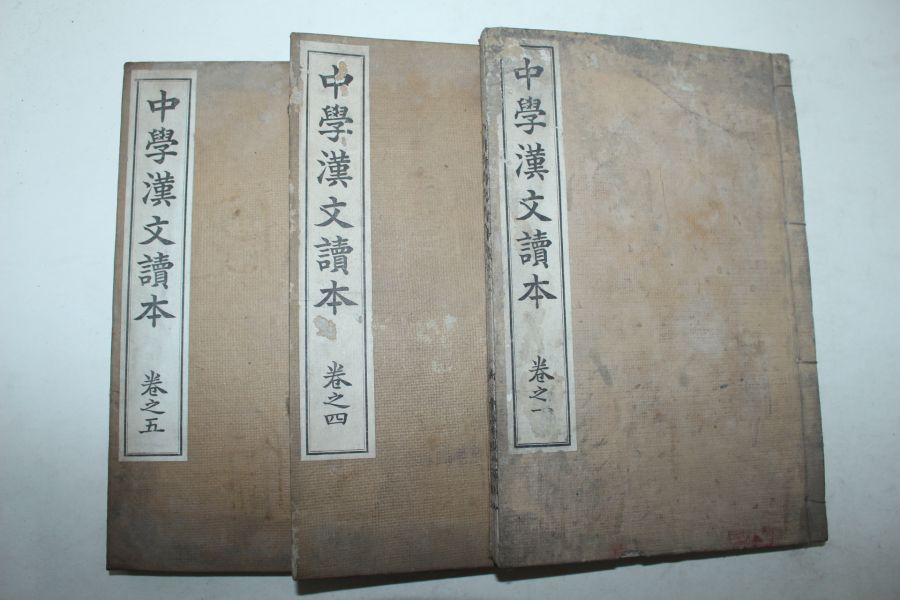 中學漢文讀本
卷之一
中學漢文讀本
卷之四
中學漢文讀本
卷之五